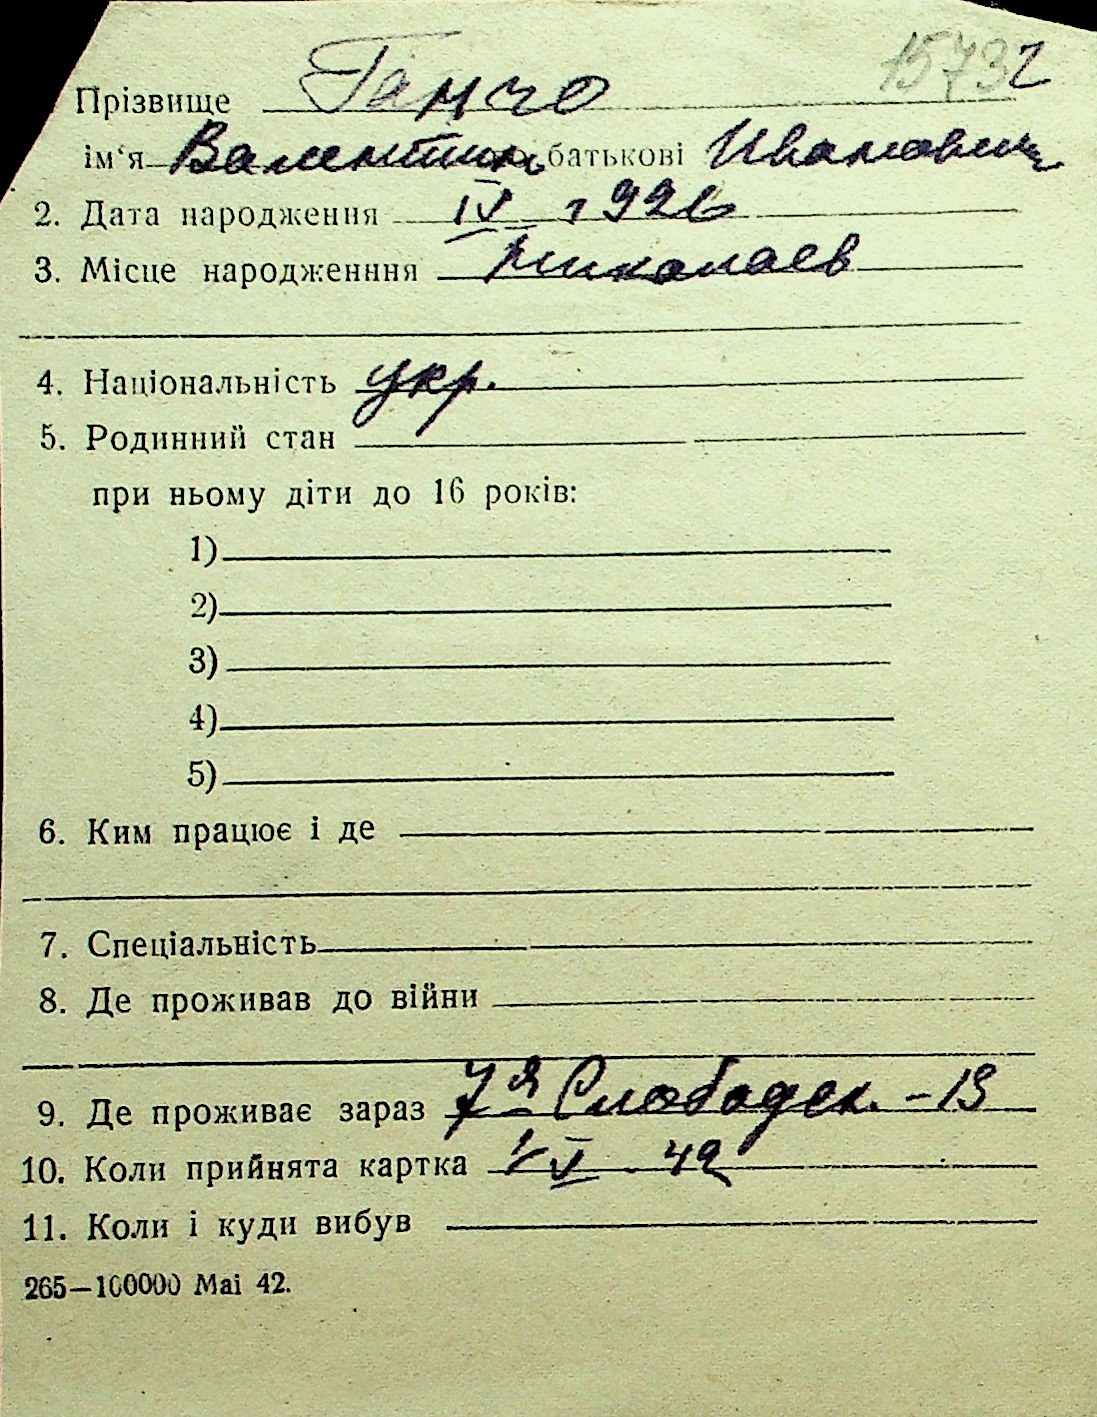 15732
Прізвище Ганчо
ім'я Валентин батькові Иванович
2. Дата народження IV 1926
3. Місце народженння Николаев
4. Національність укр.
5. Родинний стан
при ньому діти до 16 років:
1)
2)
3)
4)
5)
6. Ким працює і де
7. Спеціальність
8. Де проживав до війни
9. Де проживає зараз 7я Слободск. - 13
10. Коли прийнята картка V 42
11. Коли і куди вибув
265—100000 Mai 42.